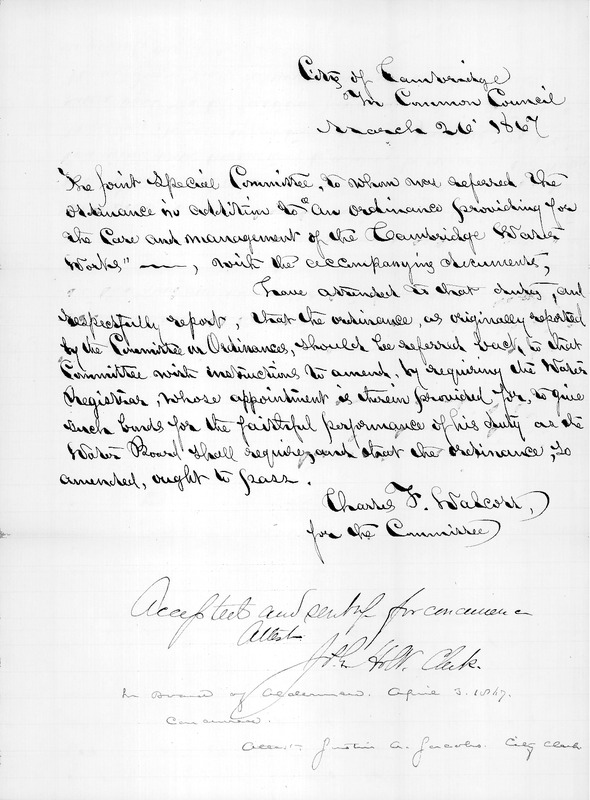 City of Cambridge
In Common Council
March 26' 1867
The Joint Special Committee, to whom was referred the
Ordinance in addition to "An Ordinance providing for
the Care and management of the Cambridge Water
Works" —, with the accompanying documents,
have attended to that duty, and
respectfully report, that the ordinance, as originally reported
by the Committee on Ordinances, should be referred back to that
Committee with instructions to amend, by requiring the Water
Registrar, whose appointment is therein provided for, to give
such bonds for the faithful performance of his duty as the
Water Board shall require, and that the ordinance, so
amended, ought to pass.
Charles F. Walcott,
for the Committee
Accepted and sent up for concurrence
Attest
Clerk.
In Board of Aldermen. April 3. 1867.
Concurred.
Attest: Justin A. Jacobs. City Clerk